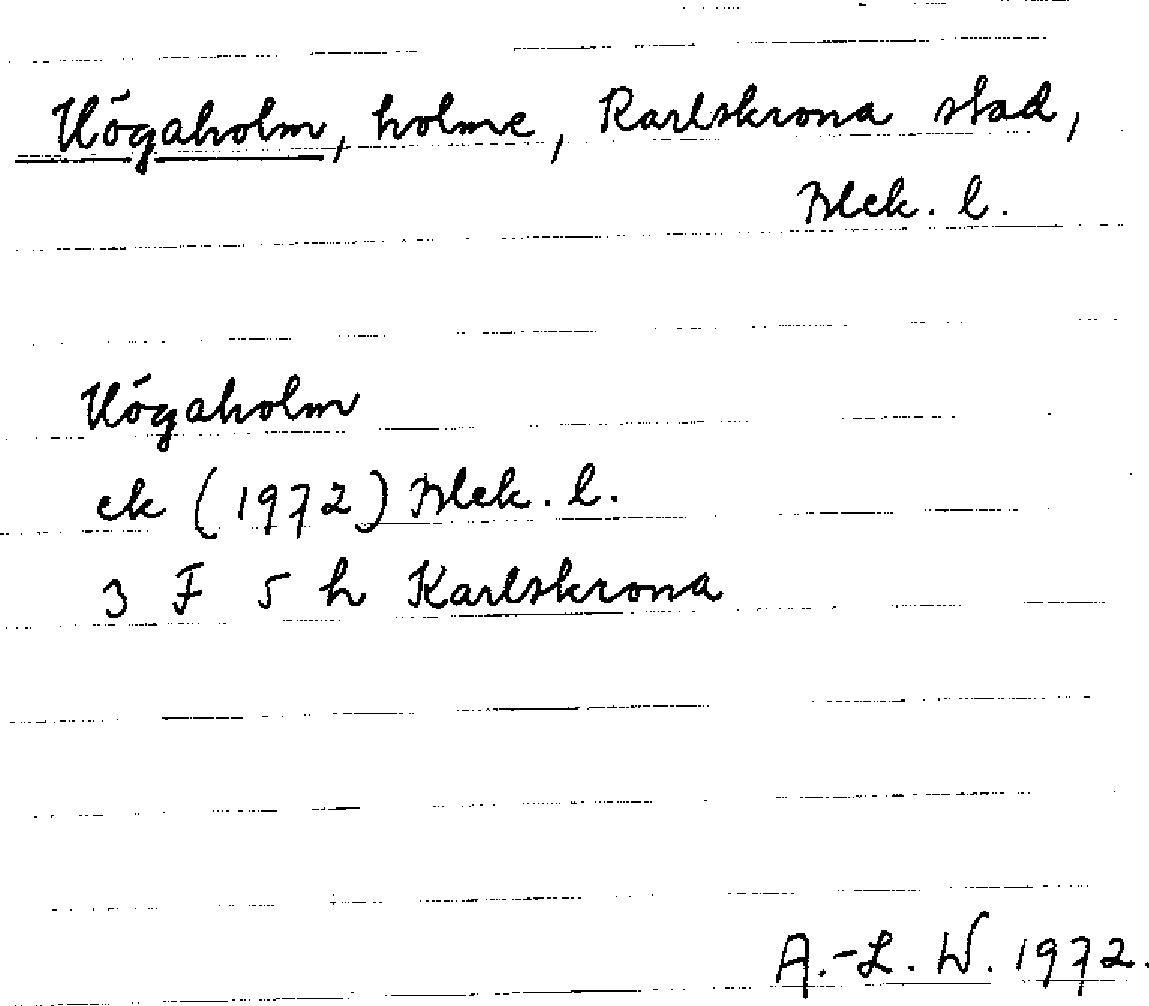 Högaholm, holme, Karlskrona stad,
Blek. l.
Högaholm
ek (1972) Blek. l.
3 F 5 h Karlskrona
A.-L. W. 1972.